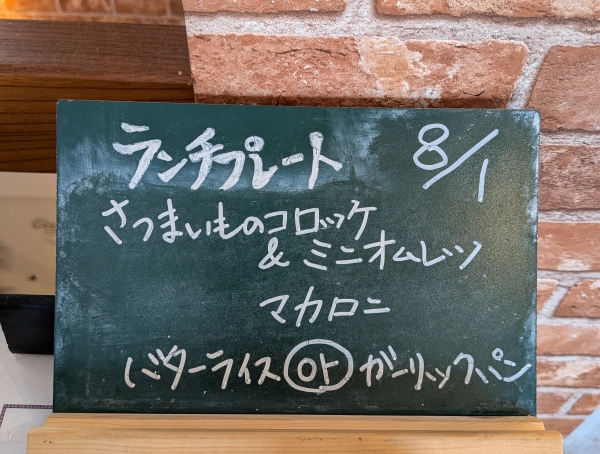 ランチプレート 8/1
さつまいものコロッケ
& ミニオムレツ
マカロニ
バターライス or ガーリックパン